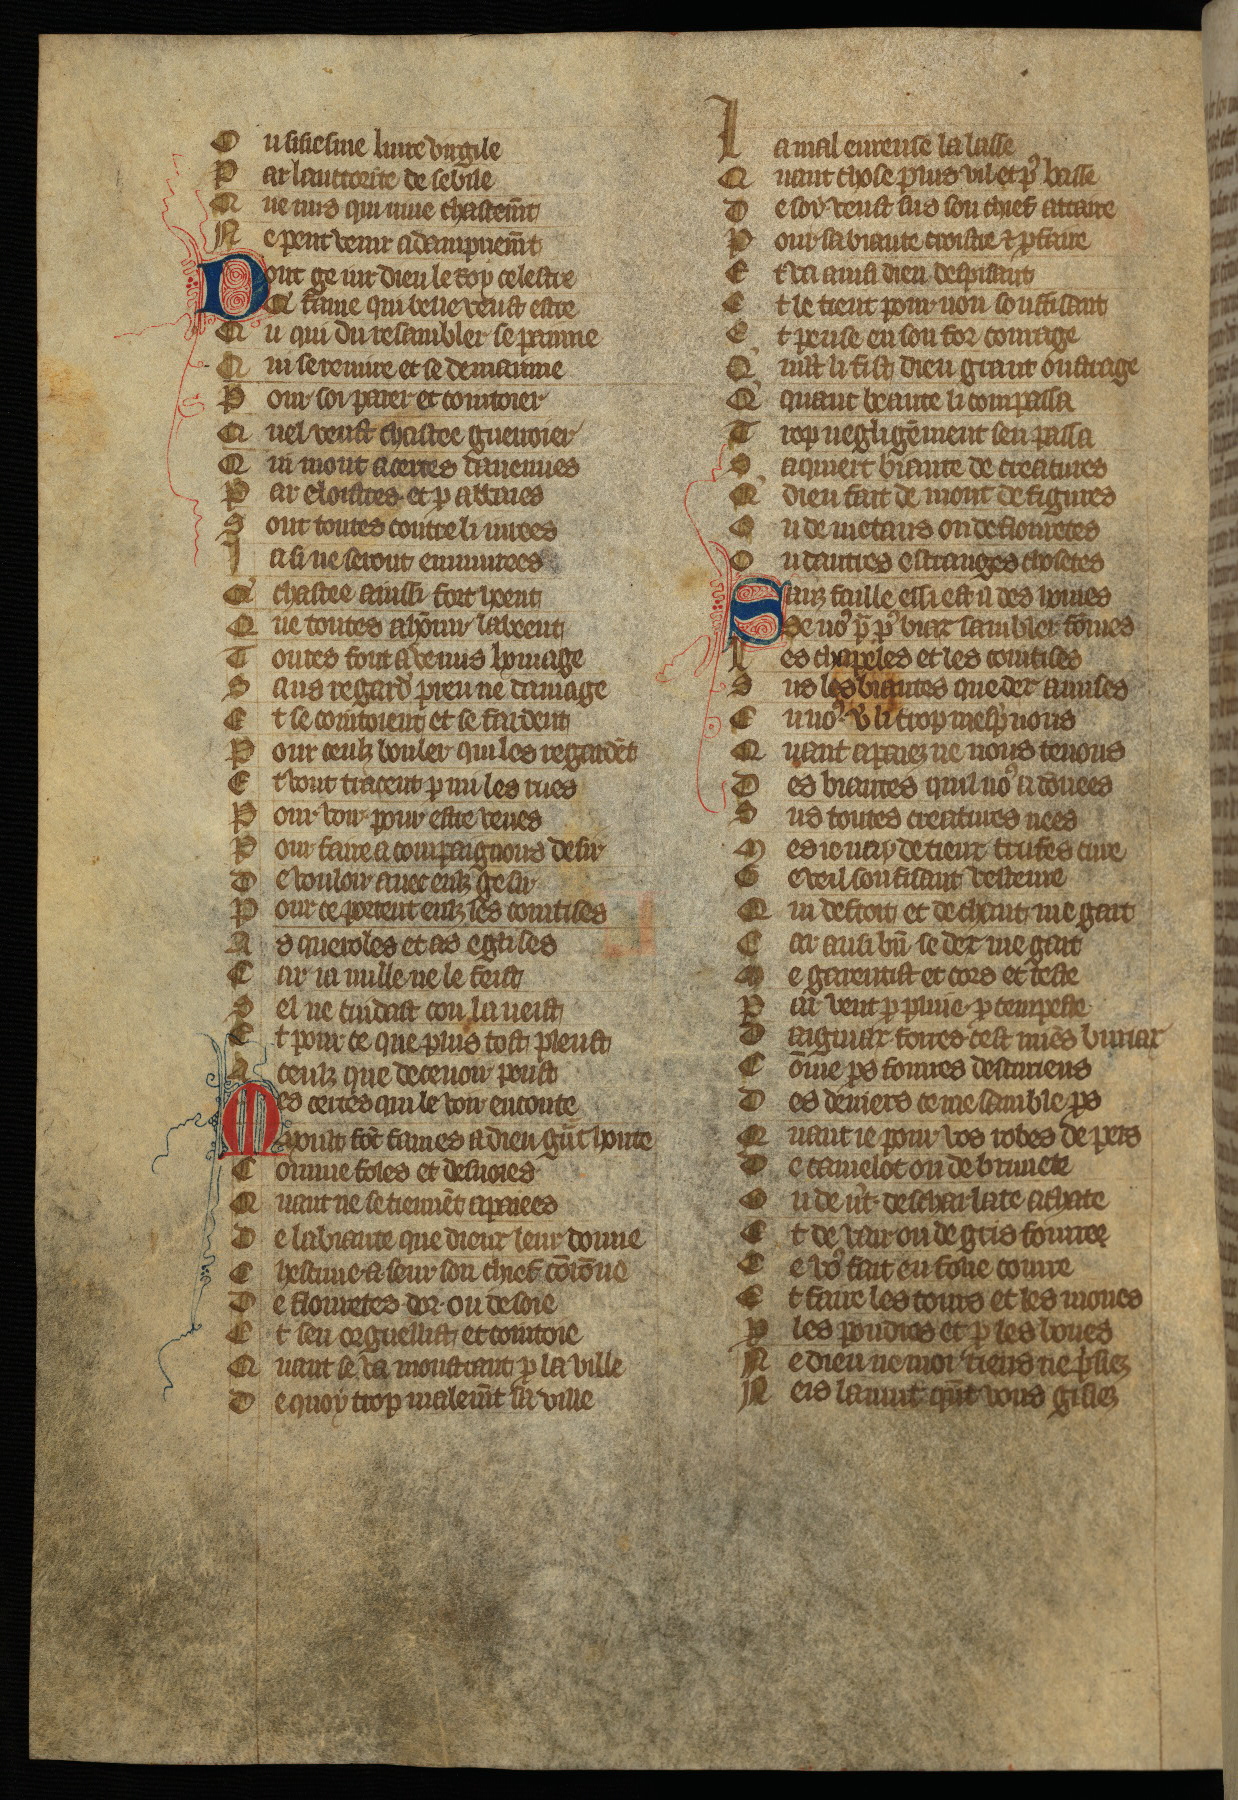 O u sisiesme liure virgile
P ar lauttorite de sebile
Q ue nus qui uiue chastemt
N e peut venir a dampnemt
Dont ge iur dieu le roy celestre
Q fame qui bele veust estre
Q u qui du resambler se painne
Q ui se remire et se demainne
P our soi parer et cointoier
Q uel veust chastee guerroier
Q ui mout a certes danemies
P ar cloistres et p abbaies
S ont toutes contre li iurees
J a si ne seront enmurees
Q chastee aussi fort heent
Q ue toutes a honir la beent
T outes font a venus homage
S ans regard preu ne damage
E t se cointoient et se fardent
P our ceulz bouler qui les regardet
E t vont tracent p mi les rues
P our voir pour estre veues
P our faire a compaignons desir
D e vouloir auec eulz gesir
P our ce portent eulz les cointises
A s queroles et as eglises
C ar ia nulle ne le feist
S el ne cuidast con la veist
E t pour ce que plus tost pleust
A ceulz que deceuoir peust
Mes certes qui le voir enconte
Mout fot fames a dieu gnt honte
C omme foles et desuoies
Q uant ne se tiennet apaiees
D e la biaute que dieux leur donne
C hescune a seur son chief corone
D e flouretes dor ou de soie
E t sen orguellist et cointoie
Q uant se va moustrant p la ville
D e quoy trop malemt sa ville
L a mal eureuse la lasse
Q uant chose plus vil et p basse
D e soy veust sus son chief attaire
P our sa biaute croistre et pfaire
E t va ainsi dieu despisant
E t le tient pour non souffisant
E t pense en son for courage
Q mlt li fist dieu grant oustrage
Q quant beaute li compassa
T rop negligement sen passa
S aquiert biaute de creatures
Q dieu fait de mont de figures
O u de metaus ou de flouretes
O u dautres estranges chosetes
Sanz faille essi est il des homes
Se no p p biax sambler fomes
L es chapeles et les cointises
S us les biautes que der a mises
E n no v li trop mespnons
Q uant apaiez ne nous tenons
D es biautes quil no a donees
S us toutes creatures nees
M es ie nay de tieux trufes cure
G e veil soufisant vesteure
Q ui de froit et de chaut me gart
C ar ausi bn se der me gart
M e garentist et cors et teste
P ar vent p pluie p tempeste
D aigniax forres cest mes buriax
C ome ps fourres descuriens
D es deniers ce me samble ps
Q uant ie pour vos robes de pers
D e camelot ou de brunete
O u de ut descharlate achate
E t de vair ou de gris fourree
C e vo fait en folie courre
E t faire les tours et les moues
P les poudres et p les boues
N e dieu ne moi riens ne prisiez
N eis la nuit qnt vous gisiez